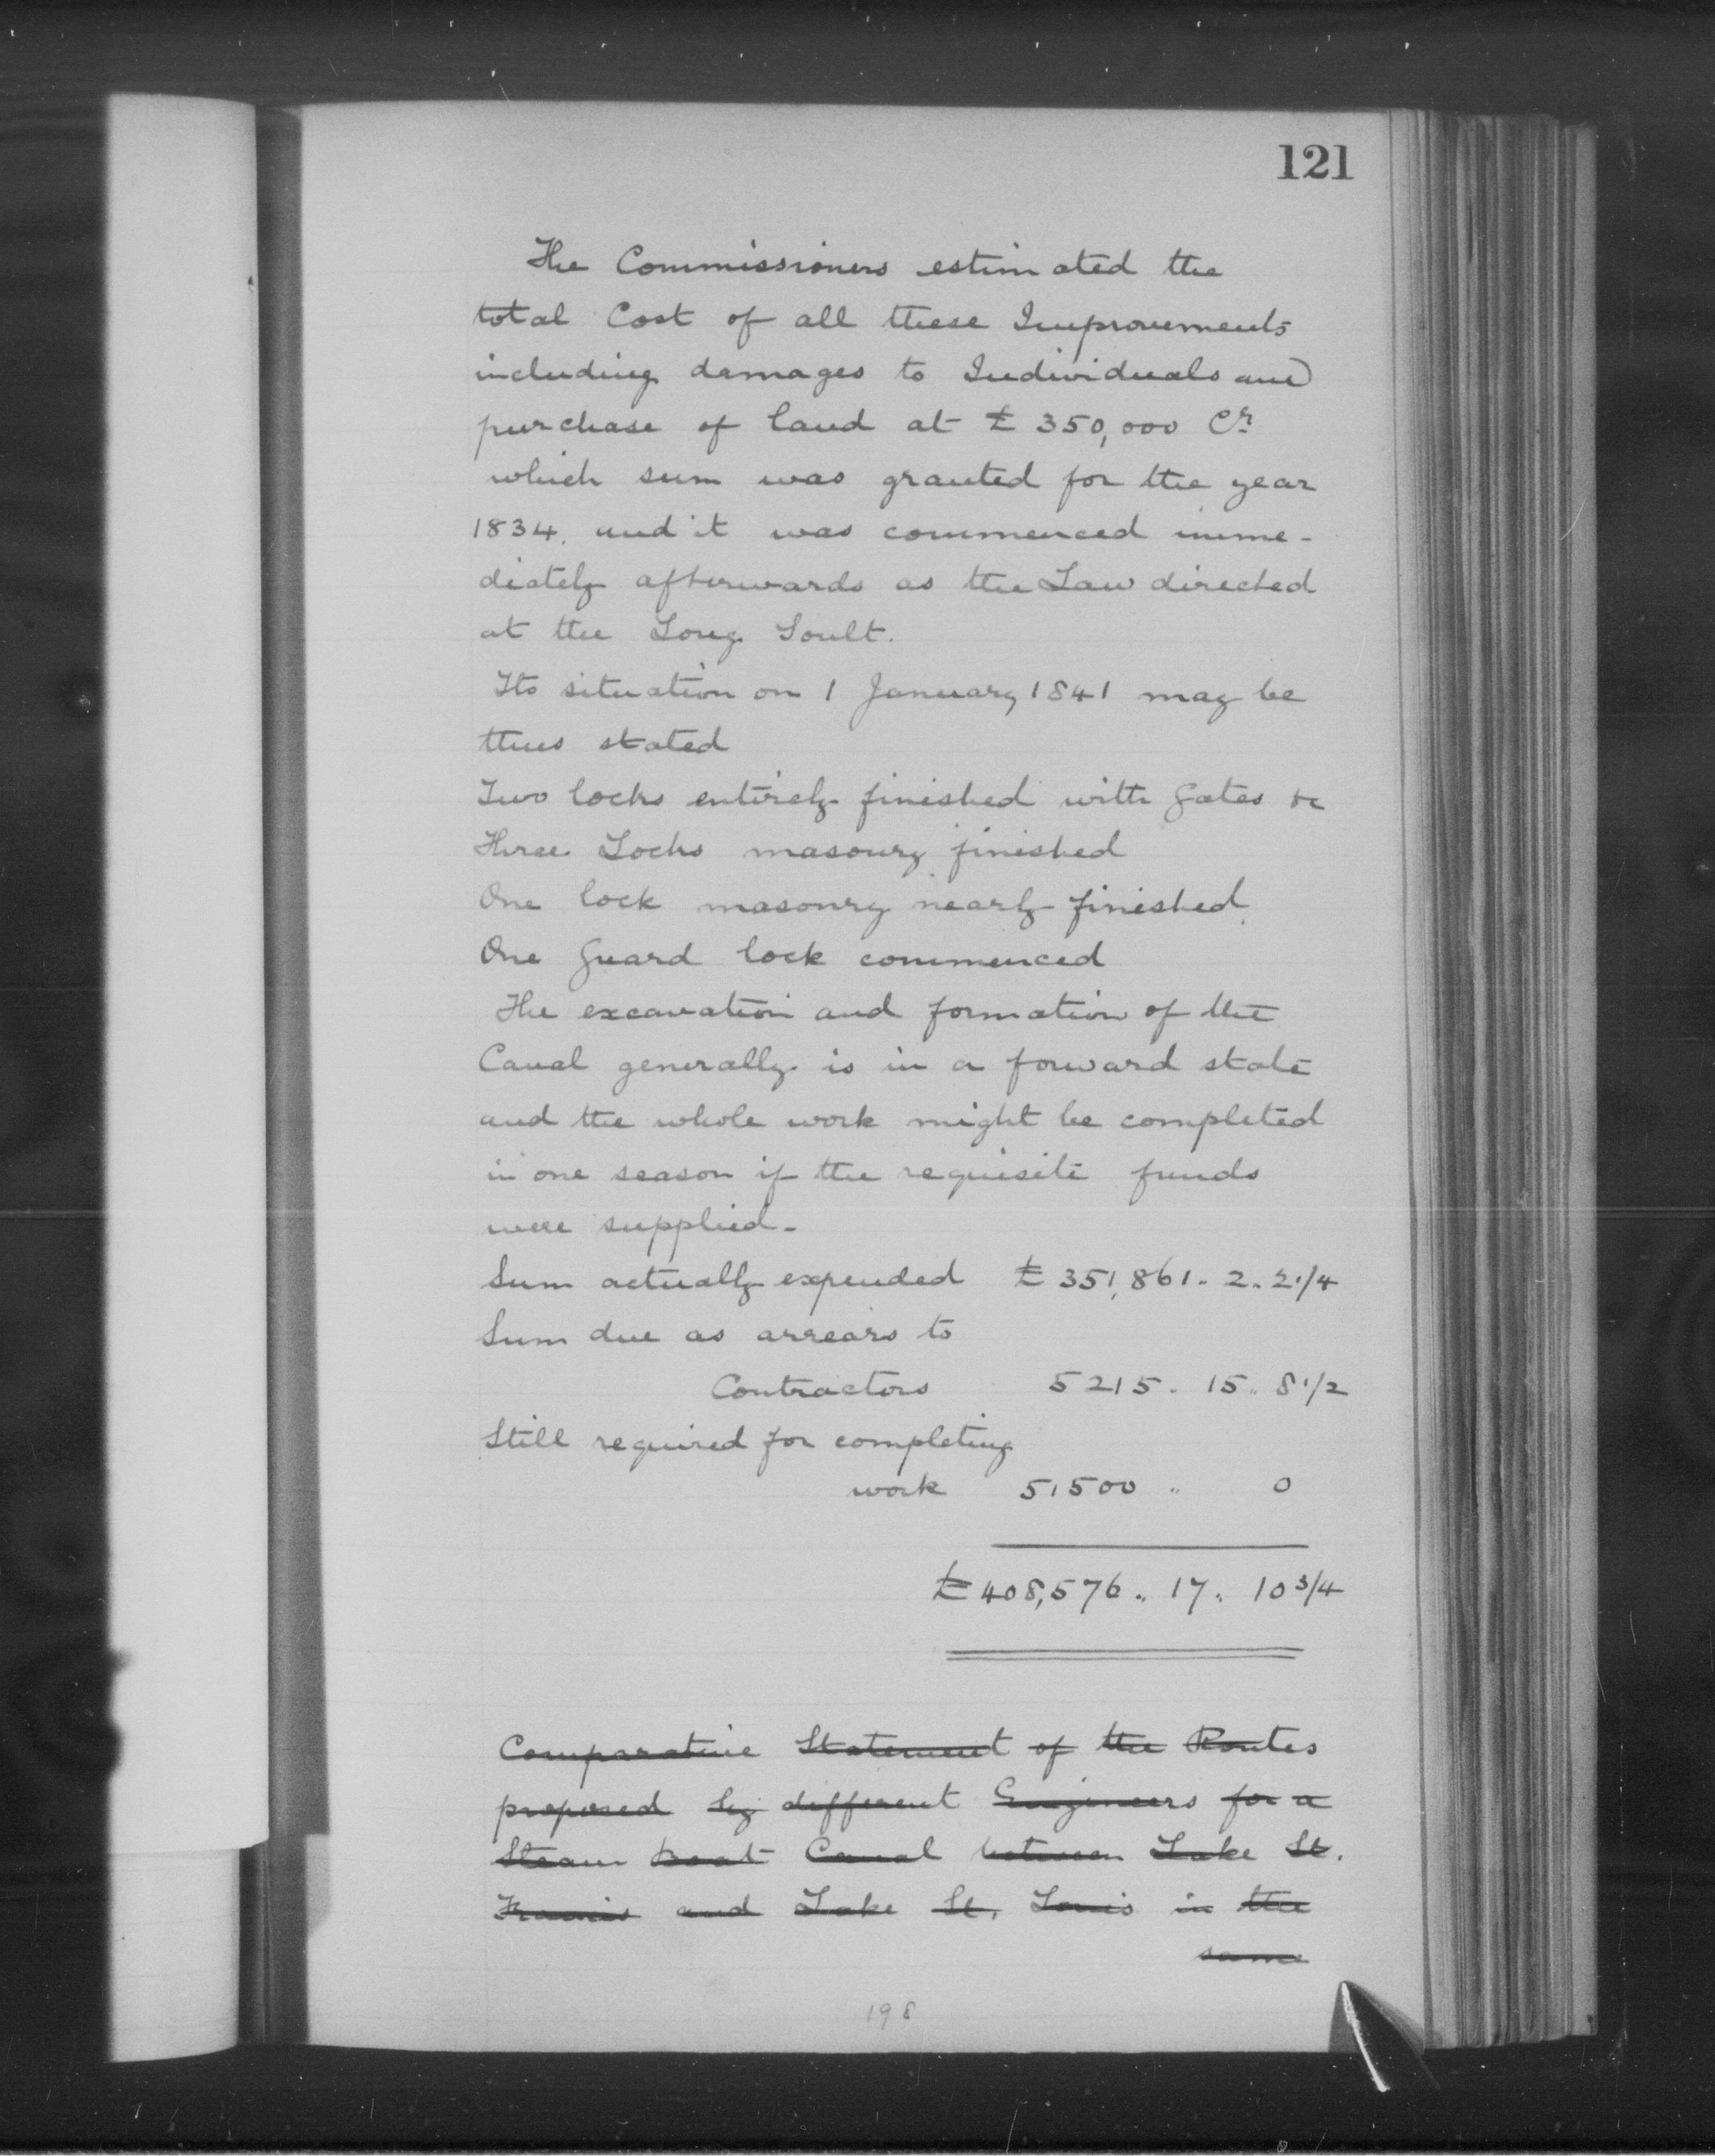 121
The Commissioners estimated the
total Cost of all these Improvements
including damages to Individuals and
purchase of land at £ 350,000 Cr
which sum was granted for the year
1834. and it was commenced imme-
diately afterwards as the Law directed
at the Long Soult.
Its situation on 1 January 1841 may be
thus stated
Two locks entirely finished with gates &c
Three Locks masonry finished
One lock masonry nearly finished.
One Guard lock commenced
The excavation and formation of the
Canal generally is in a forward state
and the whole work might be completed
in one season if the requisite funds
were supplied-
Sum actually expended £ 351,861.. 2.. 2 1/4
Sum due as arrears to
Contractors 5215. 15.. 8 1/2
Still required for completing
work 51500 .. 0
£408,576.. 17.. 10 3/4
Comparative Statement of the Routes
proposed by different Engineers for a
Steam Boat Canal between Lake St.
Francis and Lake St. Louis in the
same
198